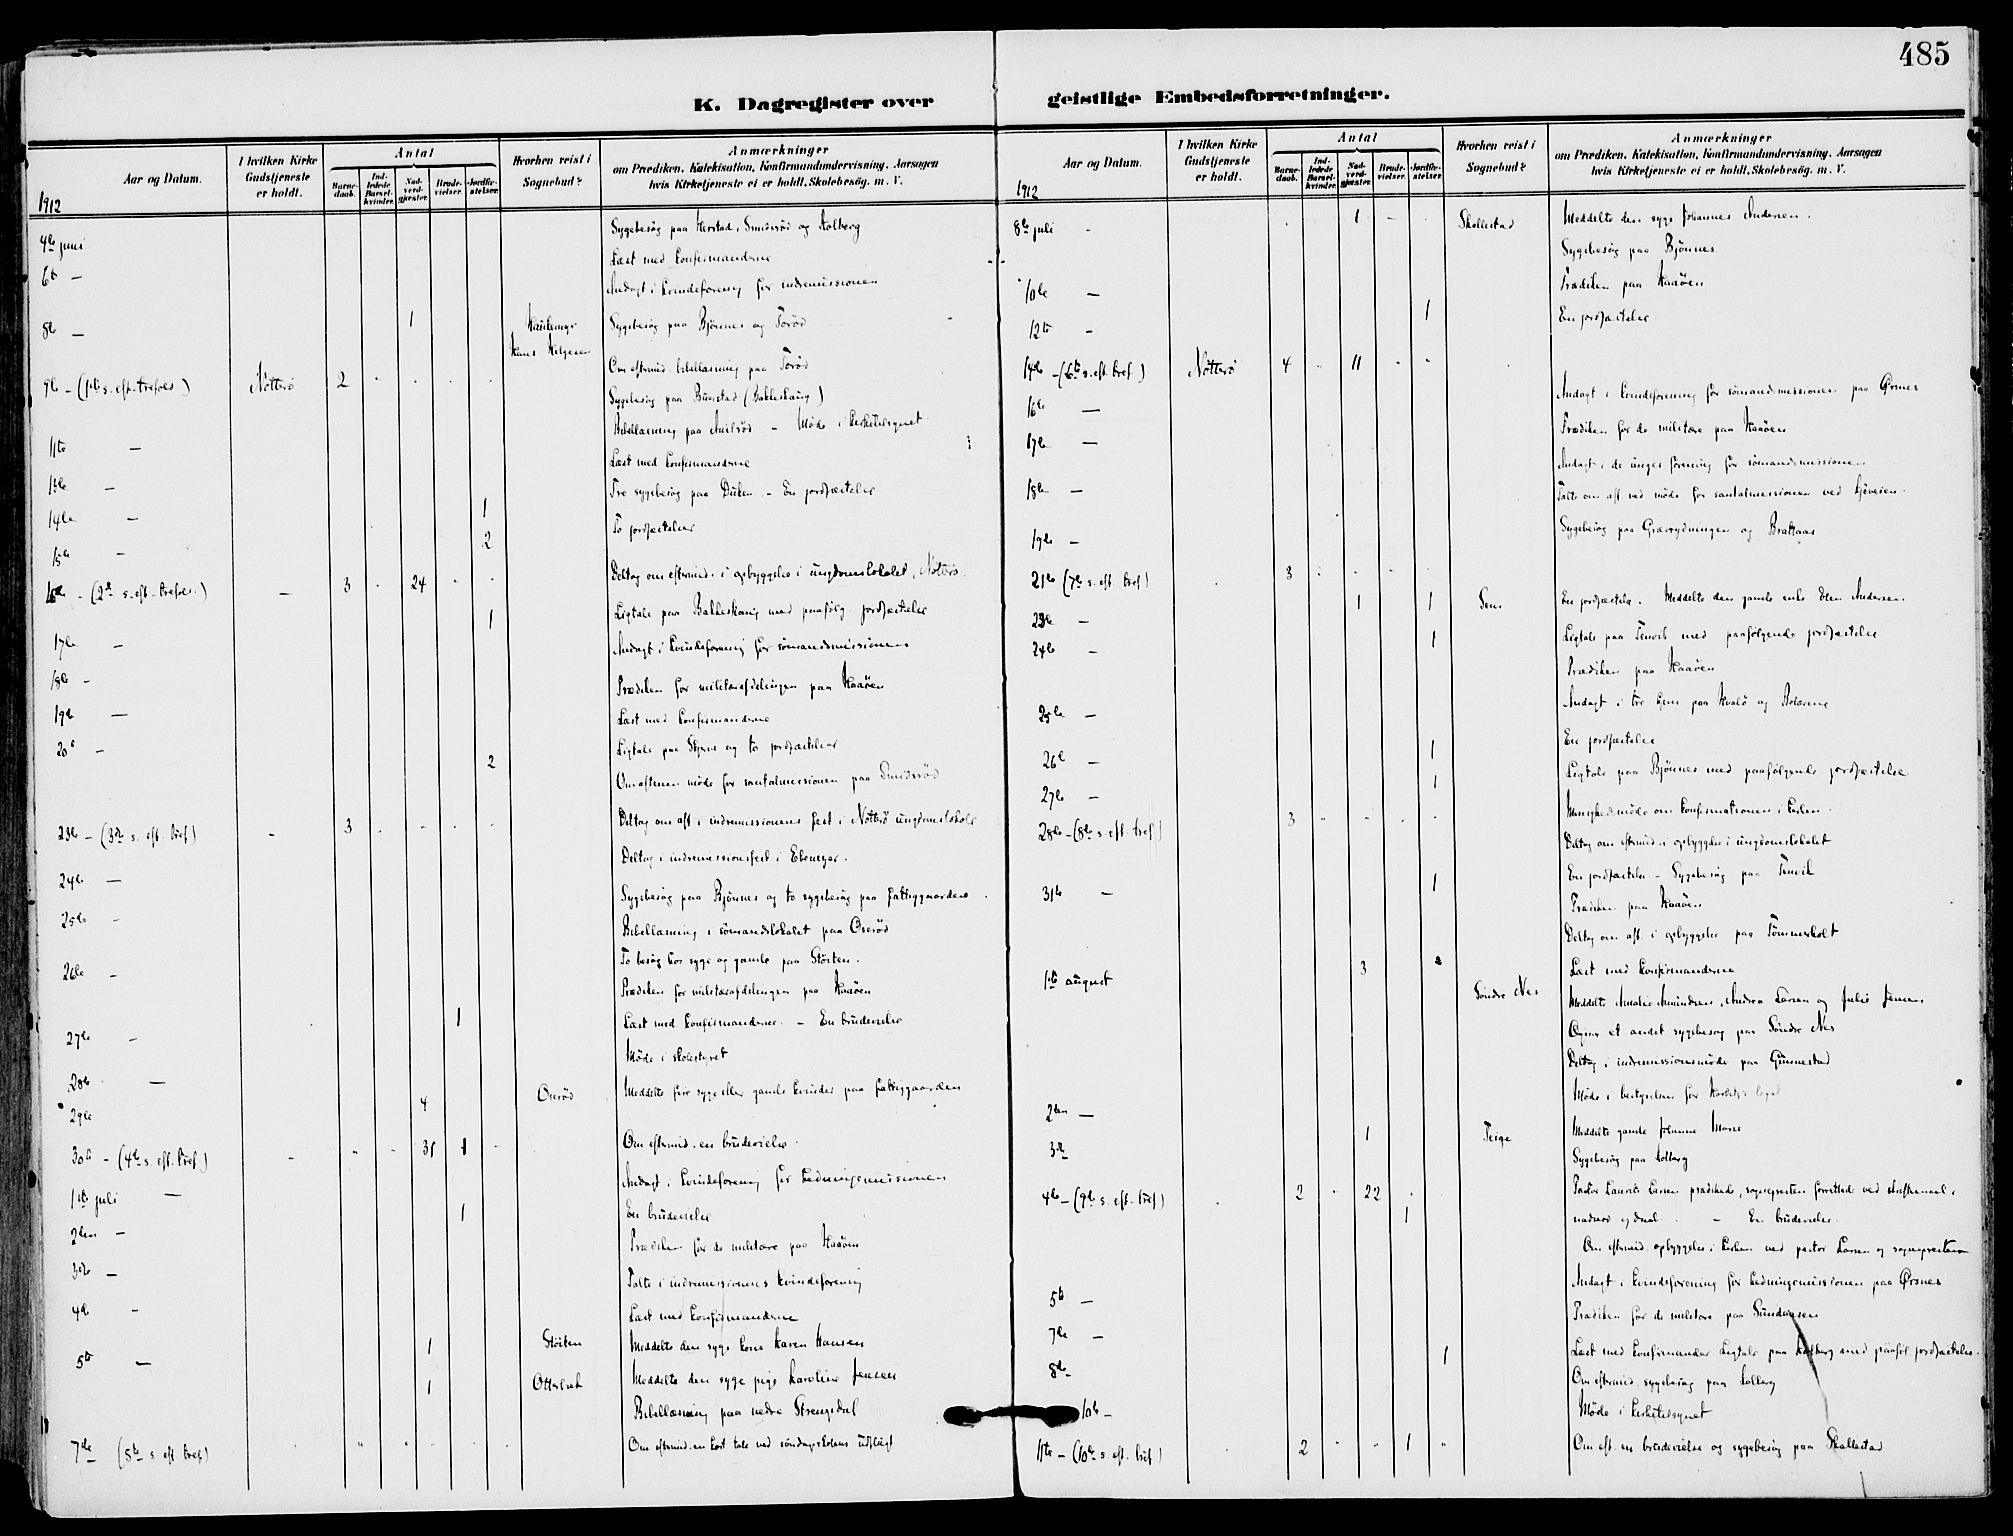 485
K. Dagregister over
geistlige Embedsforretninger.
Aar og Datum.
I hvilken Kirke Gudstjeneste er holdt.
Antal
Barnedaab.
Indledede Barselkvinder.
Nadverdgjæster.
Brudevielser.
Jordfæstelser.
Hvorhen reist i Sognebud?
Anmærkninger
om Prædiken, Katekisation, Konfirmandundervisning, Aarsagen
hvis Kirketjeneste ei er holdt, Skolebesøg, m. V.
1912
4de juni Sygebesøg paa Herstad, Smidsrød og Kolberg
6te — Læst med konfirmanderne
Andagt i kvindeforening for indremissionen
8de — 1 Sygebesøg paa Bjønnes og Torød
Hans Helgesen
Om eftermid. bibellæsning paa Torød
9de — (1ste s. eft. trefoes.) Nøtterø 2
Sygebesøg paa Buerstad (Bakkeskaug)
11te — Bibellæsning paa — Møde i kirketilsynet
13de — Læst med konfirmanderne
14de — 1 Tre sygebesøg paa Duken — En jordfæstelse
15de — 2 To jordfæstelser
16de — (2den s. eft. trefoes.) — 3 24 Deltog om eftermid. i opbyggelse i ungdomslokalet, Nøtterø.
17de — 1 Ligtale paa Bakkeskaug med paafølg. jordfæstelse
18de — Andagt i kvindeforening for sømandsmissionen
19de — Prædiken for militærafdelingen paa Haaøen
20de — Læst med konfirmanderne
2 Ligtale paa og to jordfæstelser
Om aftenen møde for santalmissionen paa Smidsrød
23de — (3die s. eft. tref.) — 3 Deltog om aft. i indremissionens fest i Nøtterø ungdomslokale
24de — Deltog i indremissionsfest i Ebeneser.
25de — Sygebesøg paa Bjønnes og to sygebesøg paa fattiggaarden
Bibellæsning i sømandslokalet paa Oserød
26de — To besøg hos syge og gamle paa Støiten.
Prædiken for militærafdelingen paa Haaøen
27de — 1 Læst med konfirmanderne. — En brudevielse
28de — Møde i skolestyret
29de 4 Oserød Meddelte fire syge eller gamle kvinder paa fattiggaarden
30de — (4de s. eft. tref.) — 31 1 Om eftermid. en brudevielse.
1ste juli — Andagt i kvindeforening for hedningemissionen
2den — 1 En brudevielse
3die — Prædiken for de militære paa Haaøen
4de — Talte i indremissionens kvindeforening
Læst med konfirmanderne
5te — 1 Støiten Meddelte den syge kone Karen Hansen
1 Otterbæk Meddelte den syge pige Karoline Jensen
Bibellæsning paa nedre Strengsdal
7de (5te s. eft. tref.) Om eftermid. en kort tale ved søndagsskolens udflugt
Aar og Datum.
I hvilken Kirke Gudstjeneste er holdt.
Antal
Barnedaab.
Indledede Barselkvinder.
Nadverdgjæster.
Brudevielser.
Jordfæstelser.
Hvorhen reist i Sognebud?
Anmærkninger
om Prædiken, Katekisation, Konfirmandundervisning, Aarsagen
hvis Kirketjeneste ei er holdt, Skolebesøg, m. V.
1912
8de juli 1 Skallestad Meddelte den syge Johannes Andersen.
Sygebesøg paa Bjønnes
10de — Prædiken paa Haaøen
12te — 1 En jordfæstelse
14de — (6te s. eft. tref.) Nøtterø 4 11
16de — Andagt i kvindeforening for sømandsmissionen paa Ørsnes
17de — Prædiken for de militære paa Haaøen
18de — Andagt i de unges forening for sømandsmissionen
Talte om aft. ved møde for santalmissionen ved
19de — Sygebesøg paa og Brattaas
21de (7de s. eft. tref.) 3
— 1 1 Sem En jordfæstelse. Meddelte den gamle enke Ellen Andersen
24de — 1 Ligtale paa Tenvik med paafølgende jordfæstelse
Prædiken paa Haaøen
25de — Andagt i tre hjem paa Hvalø og
26de — 1 En jordfæstelse
27de — 1 Ligtale paa Bjønnes med paafølgende jordfæstelse
Menighedsmøde om konfirmationen i kirken
28de — (8de s. eft. tref.) 3
Deltog om eftermid. i opbyggelse i ungdomslokalet
31te — 1 En jordfæstelse — Sygebesøg paa Tenvik
Prædiken paa Haaøen
Deltog om aft. i opbyggelse paa Tømmerholt
1ste august 3 Læst med konfirmanderne
Søndre Nes Meddelte Amalie Amundsen, Andrea Larsen og Julie Jensen
Ogsaa et andet sygebesøg paa Søndre Nes
Deltog i indremissionsmøde paa Gunnestad
2den — Møde i bestyrelsen for legat
3die 1 Teige Meddelte gamle Johanne Marie
Sygebesøg paa Kolberg
4de — (9de s. eft. tref.) 2 22 Pastor Laurits Larsen prædikede, sognepresten forrettede ved skriftemaal,
1 nadver og daab. — En brudevielse.
Om eftermid. opbyggelse i kirken ved pastor Larsen og sognepresten
5te — Andagt i kvindeforening for hedningemissionen paa Ørsnes
7de — Prædiken for de militære paa Sundaasen
8de 1 Læst med konfirmander. Ligtale paa Kolberg med paafølg. jordfæstelse.
Om eftermid. sygebesøg paa Kolberg
10de — Møde i kirketilsynet
11te — (10de s. eft. tref.) 2 1 Om eft. en brudevielse og sygebesøg paa Skallestad